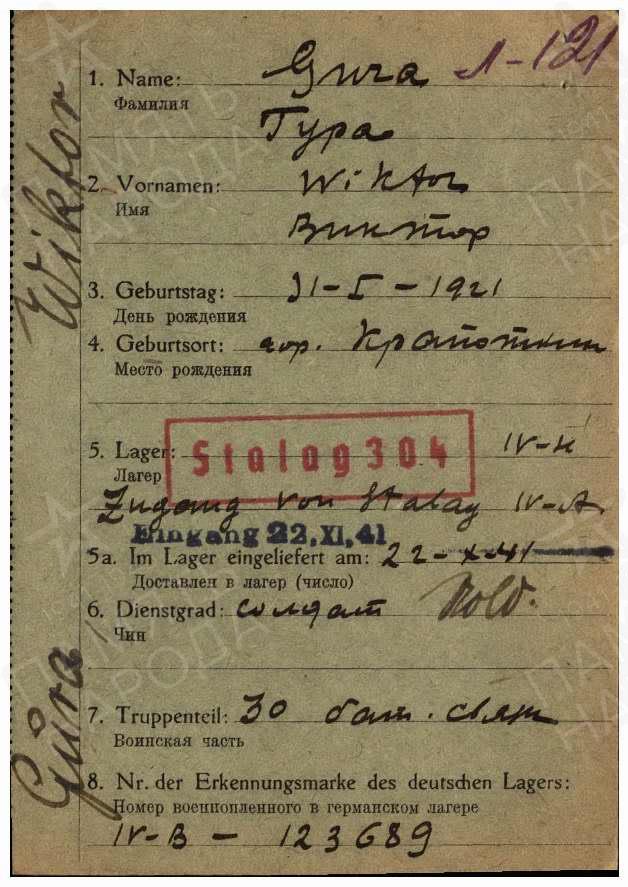 1. Name: Gura Л-121
Фамилия
Гура
2. Vornamen: Wiktor
Имя
Виктор
3. Geburtstag: 31-I-1921
День рождения
4. Geburtsort: гор. Крапоткин
Место рождения
5. Lager: Stalag 304 IV-H
Лагер
Zugang von Stalag IV-A
Eingang 22.XI.41
5a. Im Lager eingeliefert am: 22-X-41
Доставлен в лагер (число)
6. Dienstgrad: солдат Sold.
Чин
7. Truppenteil: 30 бат. связи
Воинская часть
8. Nr. der Erkennungsmarke des deutschen Lagers:
Номер военнопленного в германском лагере
IV-B - 123689
Gura Wiktor